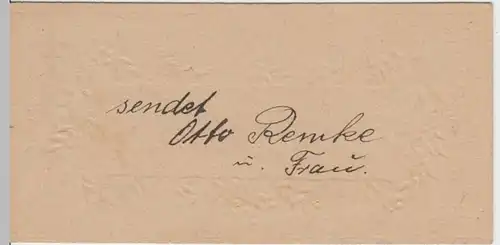 sendet
Otto Remke
u. Frau.